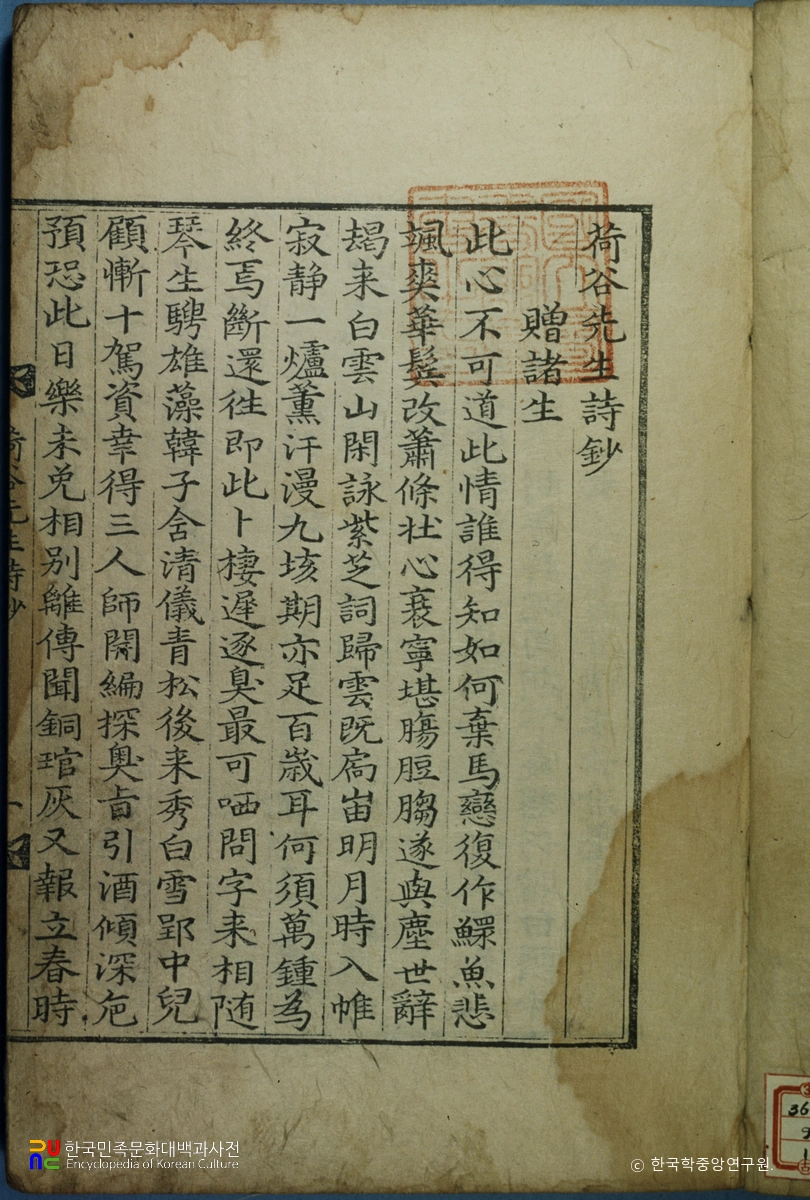 荷谷先生詩鈔
贈諸生
此心不可道此情誰得知如何棄馬戀復作鰥魚悲
颯爽華鬢改蕭條壯心衰寧堪膓脰遂與塵世辭
朅来白雲山閑詠紫芝詞歸雲既扄峀明月時入帷
寂静一爐薰汗漫九垓期亦足百歲耳何須萬鍾為
終焉斷還徃即此卜棲遲逐臭最可哂問字来相随
琴生騁雄藻韓子舍清儀青松後来秀白雪郢中兒
顧慚十駕資幸得三人師開編探奥旨引酒傾深巵
預恐此日樂未免相别離傳聞銅琯灰又報立春時
荷谷先生詩鈔 一
한국민족문화대백과사전
Encyclopedia of Korean Culture
© 한국학중앙연구원.